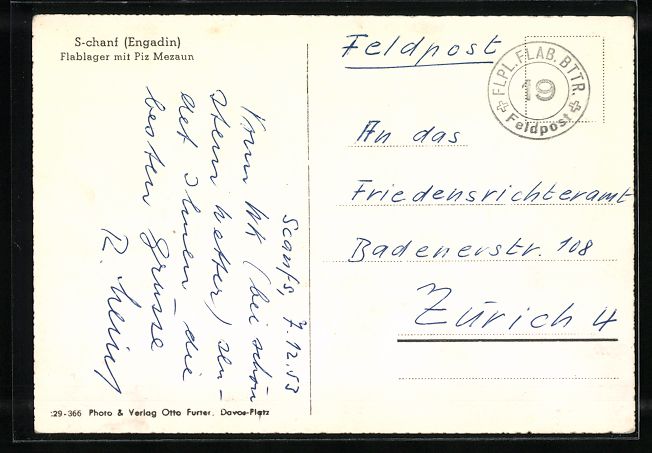 S-chanf (Engadin)
Flablager mit Piz Mezaun
Scanfs 7.12.53
Vom WK (bei schön-
stem Wetter) sen-
det Ihnen die
besten Grüsse
R.
Feldpost
FLPL. FLAB. BTTR.
19
Feldpost
An das
Friedensrichteramt
Badenerstr. 108
Zürich 4
:29-366 Photo & Verlag Otto Furter, Davos-Platz